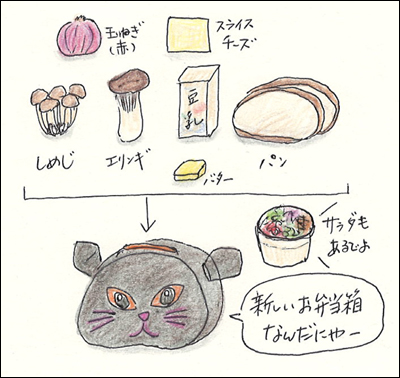 玉ねぎ
(赤)
スライス
チーズ
豆乳
しめじ
エリンギ
バター
パン
サラダも
あるでよ
新しいお弁当箱
なんだにゃー